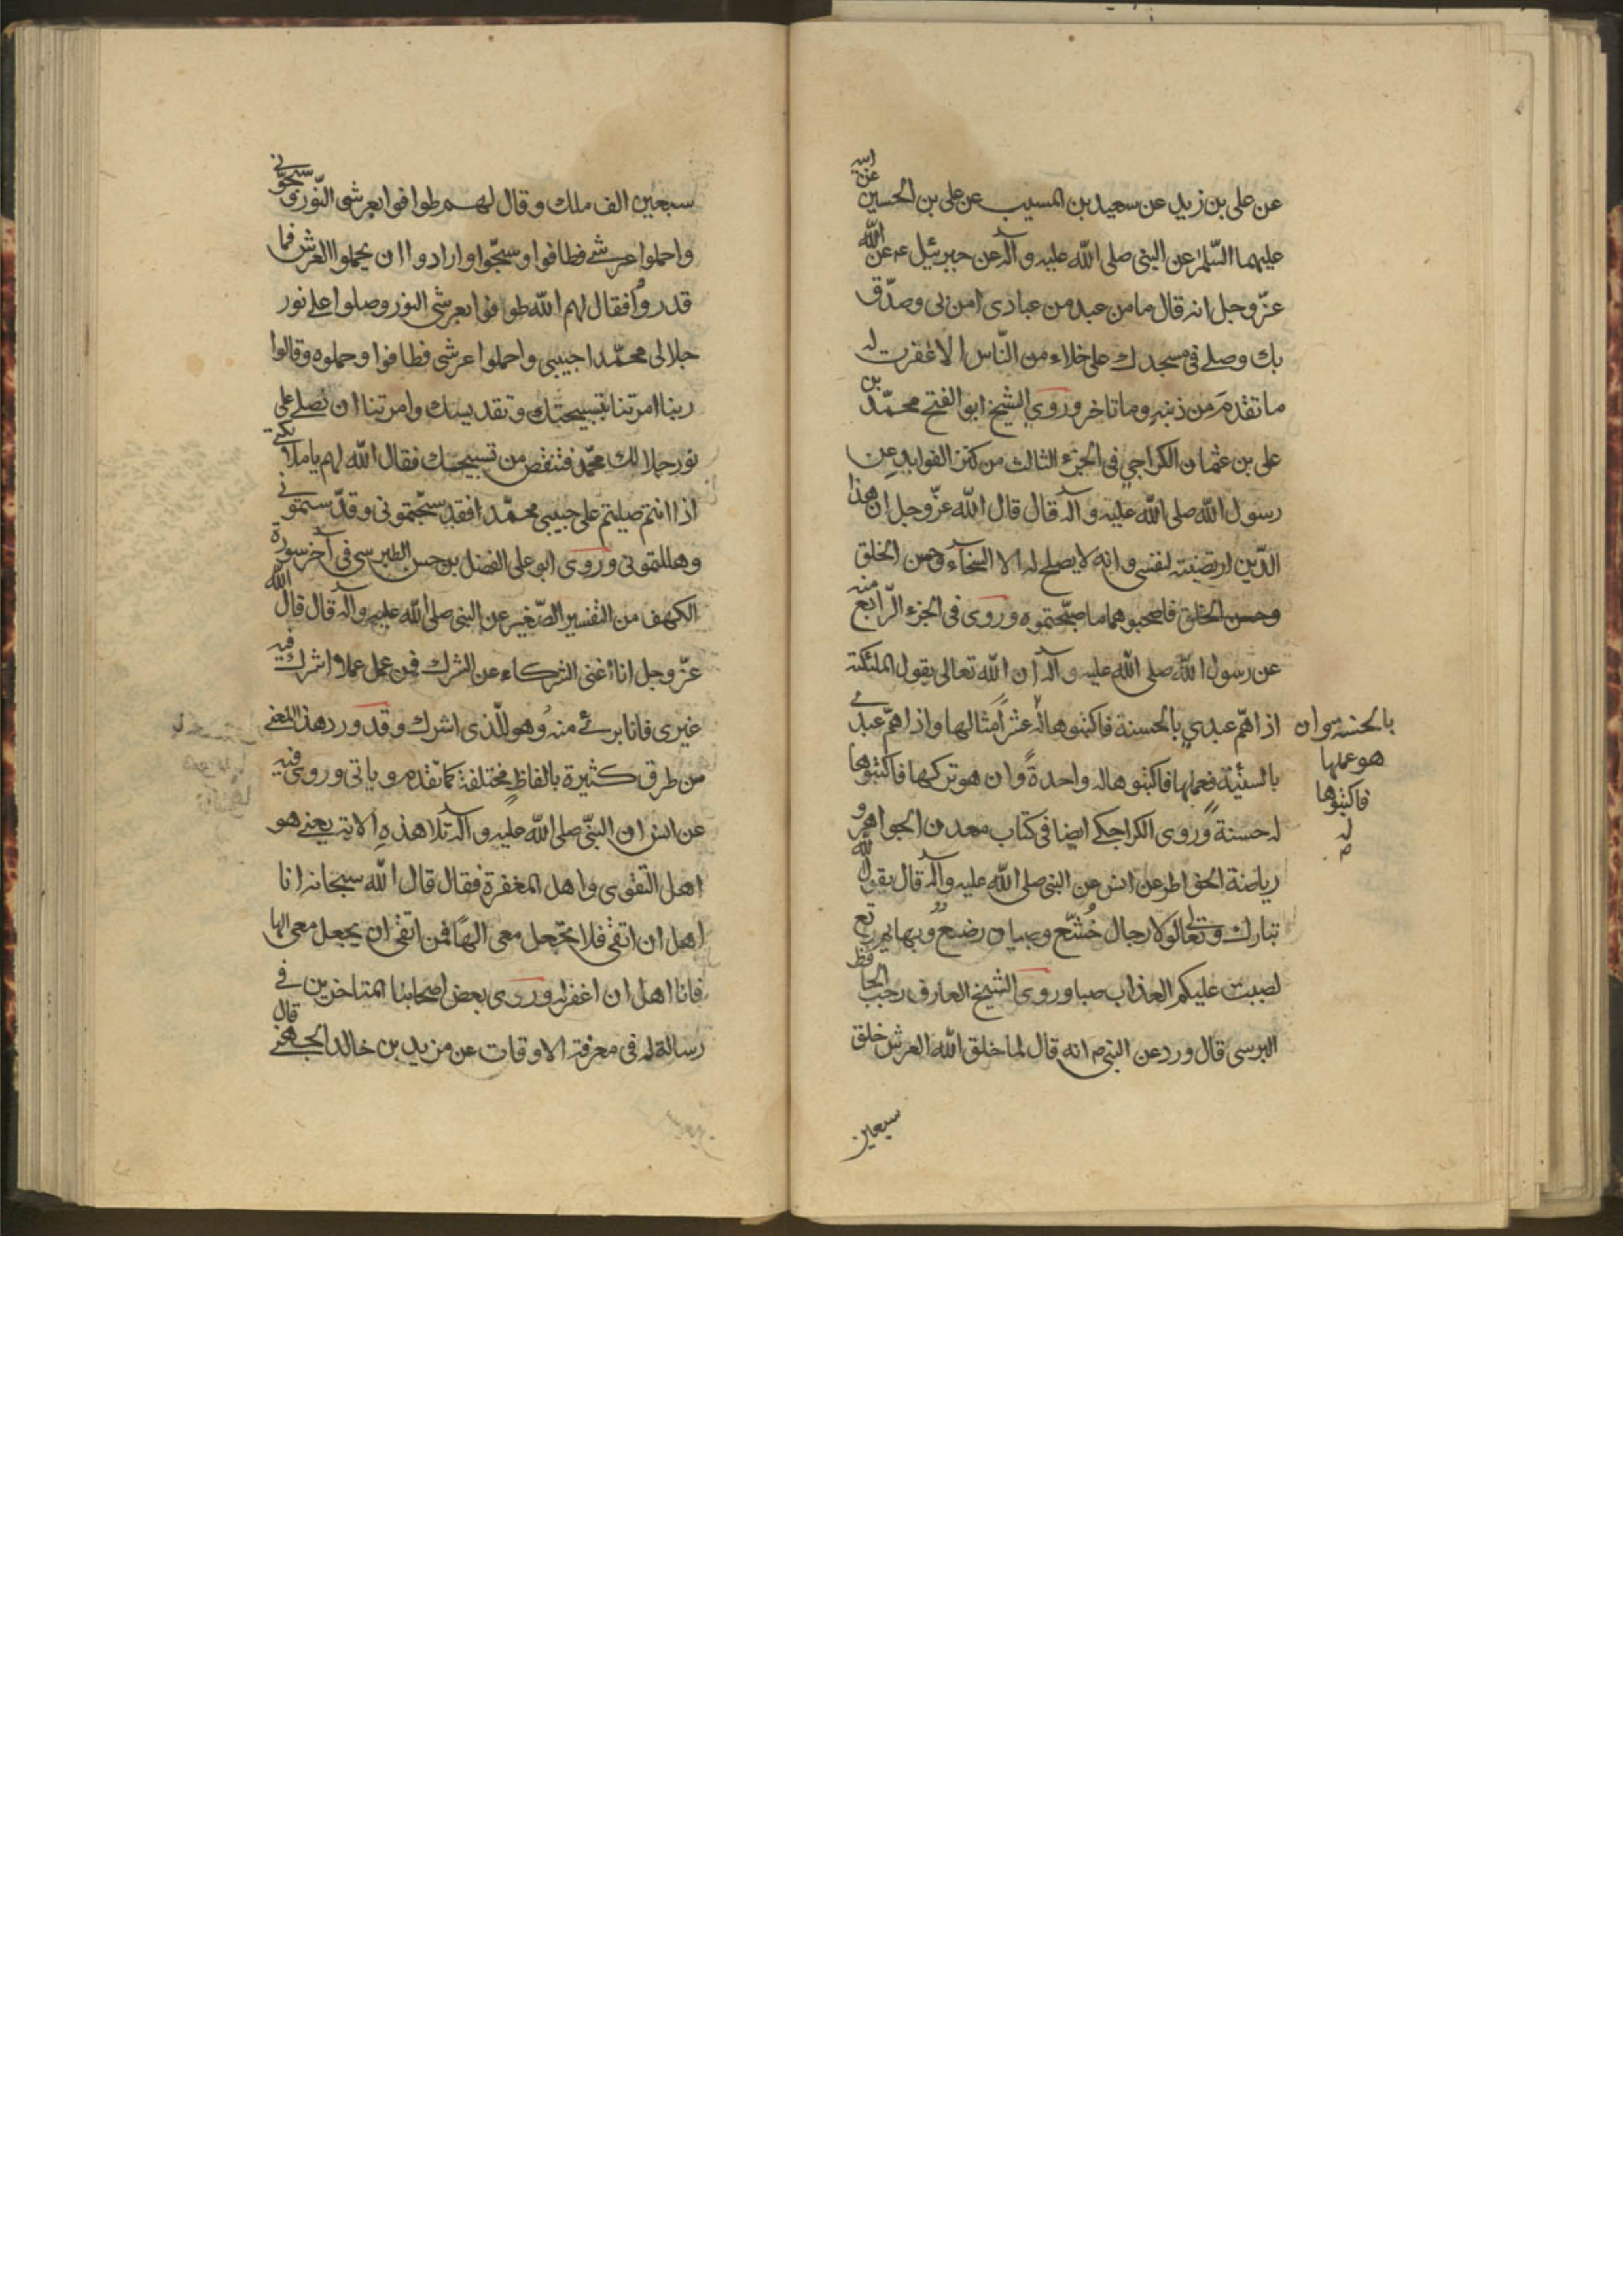 عن على بن زيد عن سعيد بن المسيب عن على بن الحسين عن ابيه
عليهما السّلم عن النبى صلى الله عليه وآله عن جبرئيل عه عن الله
عزّ وجل انه قال ما من عبد من عبادى امن بى وصدّق
بك وصلے فى مسجدك على خلاء من النّاس الا غفرت له
ما تقدم من ذنبه وما تاخر وروى الشيخ ابو الفتح محمّد بن
على بن عثمان الكراجى فى الجزء الثالث من كنز الفوايد عن
رسول الله صلى الله عليه وآله قال قال الله عزّ وجل ان هذا
الدّين ارتضيته لنفسى وانه لا يصلح له الا السّخاء وحسن الخلق
وحسن الخلق فاصحبوهما ما صحبتموه وروى فى الجزء الرّابع منه
عن رسول الله صلى الله عليه وآله ان الله تعالى يقول الملئكته
اذا همّ عبدي بالحسنة فاكتبوها له عشراً مثالها واذا همّ عبدى
بالسئية فعملها فاكتبوها له واحدةً وان هو تركها فاكتبوها
له حسنة وروى الكراجكے ايضا فى كتاب معدن الجواهر و
رياضة الخواطر عن انس عن النبى صلى الله عليه وآله قال يقول الله
تبارك وتعالى لولا رجال خُشّع وصبيان رضع وبهايم رتع
لصببت عليكم العذاب صبا وروى الشيخ العارف رجب الحافظ
البرسى قال ورد عن النبى ص انه قال لما خلق الله العرش خلق
سبعين
بالحسنه وان
هو عملها
فاكتبوها
له
ص
سبعين الف ملك وقال لهم طوافوا بعرشى النّور وسبحونى
واحملوا عرشے فطافوا وسبّحوا وارادوا ان يحملوا العرش فما
قدروا فقال لهم الله طوافوا بعرشى النور وصلوا علے نور
جلالى محمّدا حبيبى واحملوا عرشى فطافوا وحملوه وقالوا
ربنا امرتنا بتسبيحتك وتقديسك وامرتنا ان نصلے على
نور جلالك محمّد فتنقص من تسبيحتك فقال الله لهم يا ملائكتى
اذا انتم صليتم على حبيبى محمّد افقد سبّحتمونى وقدّستمونى
وهللتمونى وروى ابو على الفضل بن حسن الطبرسى فى آخر سورة
الكهف من التفسير الصّغير عن النبى صلى الله عليه وآله قال قال الله
عزّ وجل انا اغنى الشركاء عن الشرك فمن عمل عملا واشرك فيه
غيرى فانا برئے منه وهو للّذى اشرك وقد ورد هذا المعنے
من طرق كثيرة بالفاظ مختلفة كما تقدم وياتى وروى فيه
عن انس ان النبّى صلى الله عليه وآله تلا هذه الآية يعنے هو
اهل التّقوى واهل المغفرة فقال قال الله سبحانه انا
اهل ان اتقى فلا يجّعل معى الهاً فمن اتقى ان يجعل معى الها
فانا اهل ان اغفر له وروى بعض اصحابنا المتاخرين فے
رسالة له فى معرفة الاوقات عن مزيد بن خالد الجهنے قال